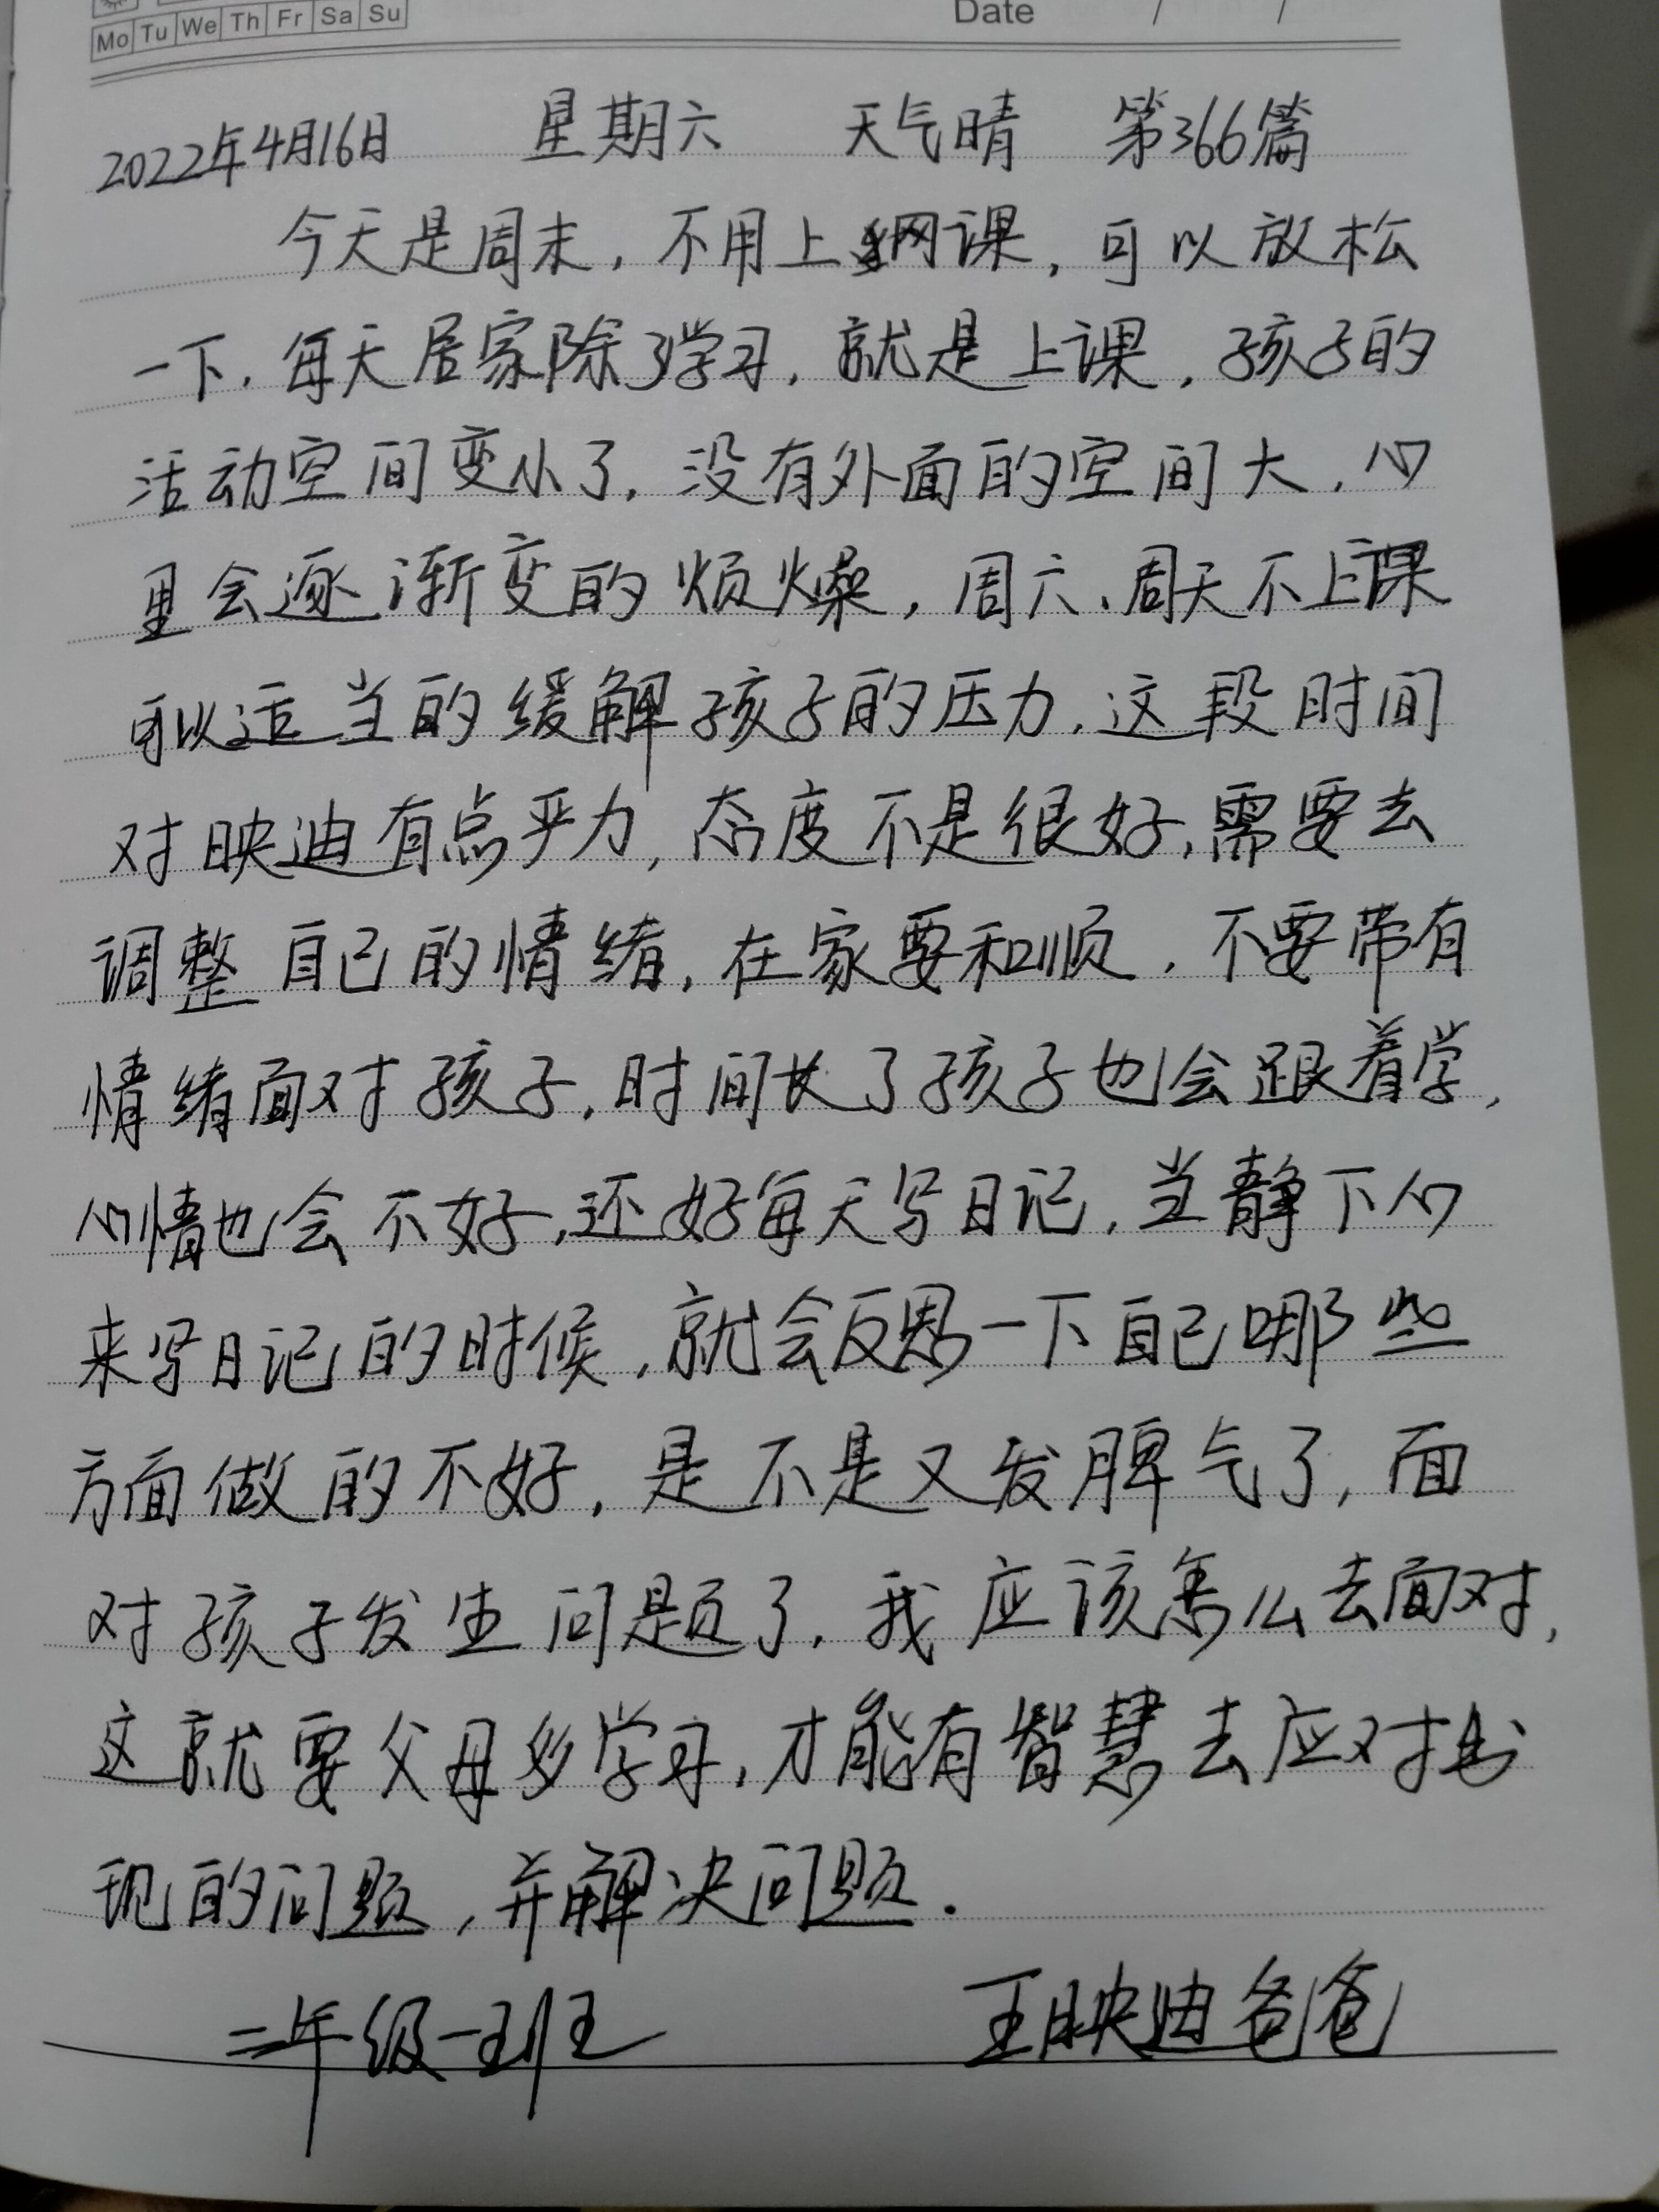 Mo Tu We Th Fr Sa Su Date / /
2022年4月16日 星期六 天气晴 第366篇
今天是周末，不用上网课，可以放松
一下，每天居家除了学习，就是上课，孩子的
活动空间变小了，没有外面的空间大，心
里会逐渐变的烦燥，周六、周天不上课
可以适当的缓解孩子的压力，这段时间
对映迪有点乎力，态度不是很好，需要去
调整自己的情绪，在家要和顺，不要带有
情绪面对孩子，时间长了孩子也会跟着学，
心情也会不好，还好每天写日记，当静下心
来写日记的时候，就会反思一下自己哪些
方面做的不好，是不是又发脾气了，面
对孩子发生问题了，我应该怎么去面对，
这就要父母多学习，才能有智慧去应对出
现的问题，并解决问题.
二年级一班 王映迪爸爸